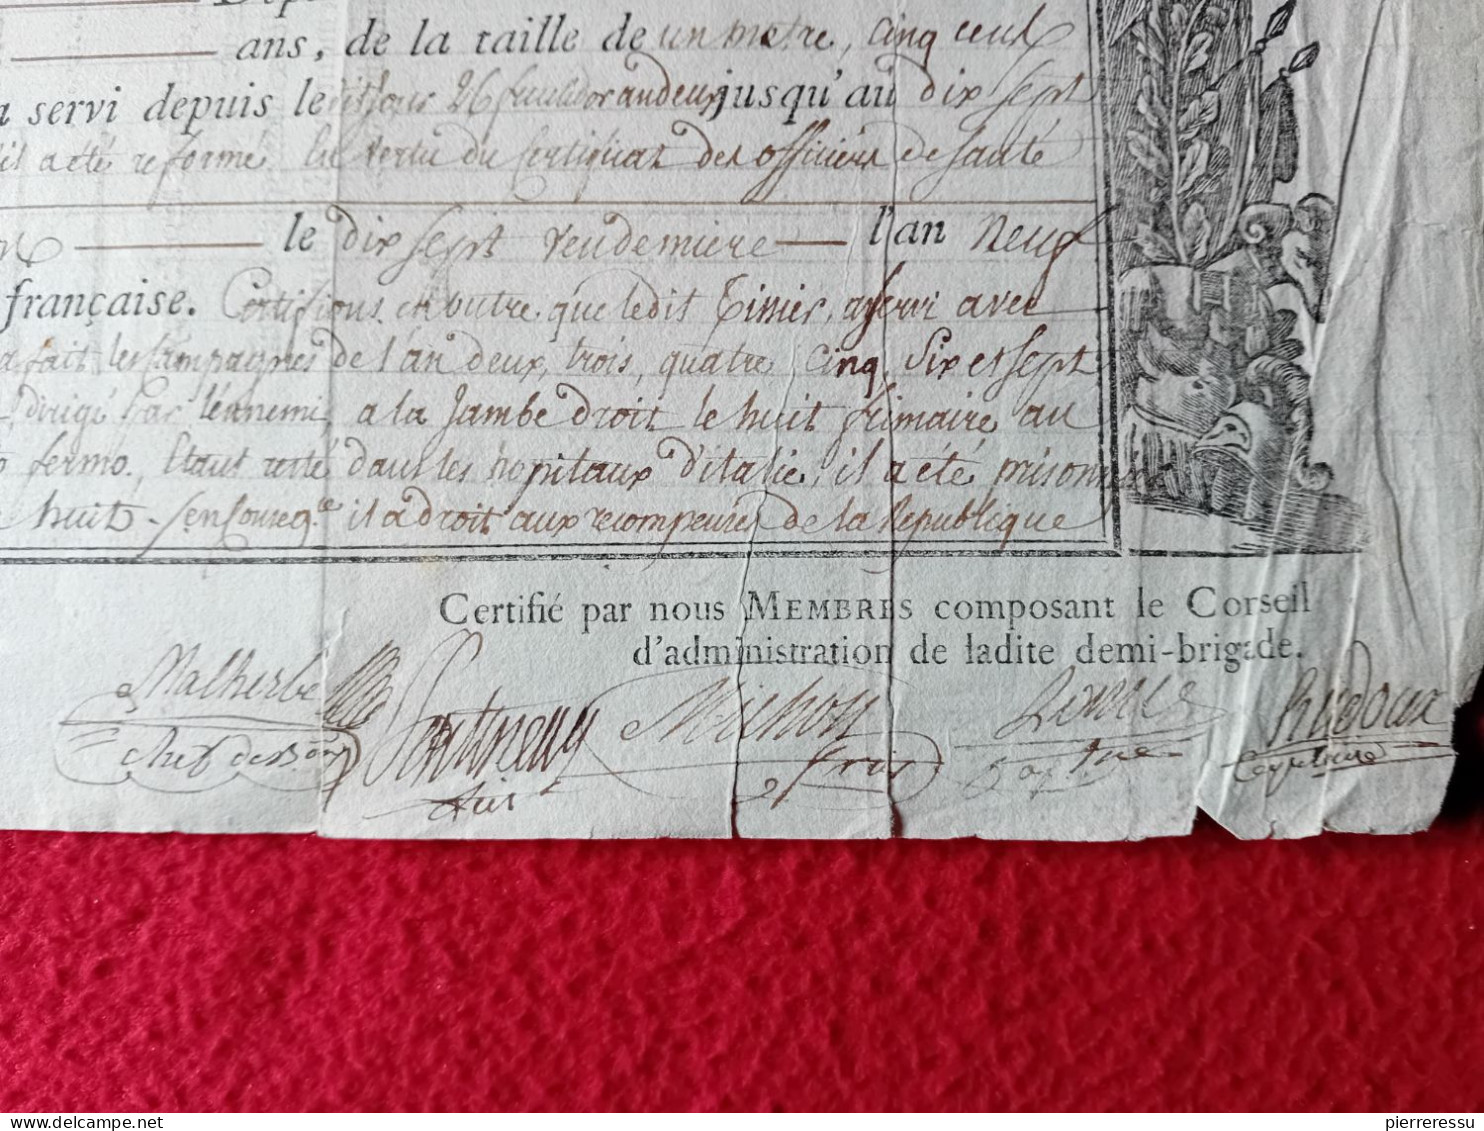 ans, de la taille de un metre, cinq cent
a servi depuis le dit jour 26 jusqu'au dix sept
il a eté reformé En vertu du Certificat des officiers de santé
le dix sept vendemiere l'an neuf
française. Certifions en outre que ledit Tissier, a servi avec
a fait les Campagnes de l'an deux, trois, quatre Cinq, Six et sept
dirigé par l'ennemi, a la Jambe droit le huit frimaire au
fermo. Etant resté dans les hopitaux d'italie, il a eté prisonnier
huit. en Conseq.ce il a droit aux recompenses de la Republique
Certifié par nous MEMBRES composant le Conseil
d'administration de ladite demi-brigade.
Malherbe Michon Rudoux
Chef de B.on Capitaine
pierreressu